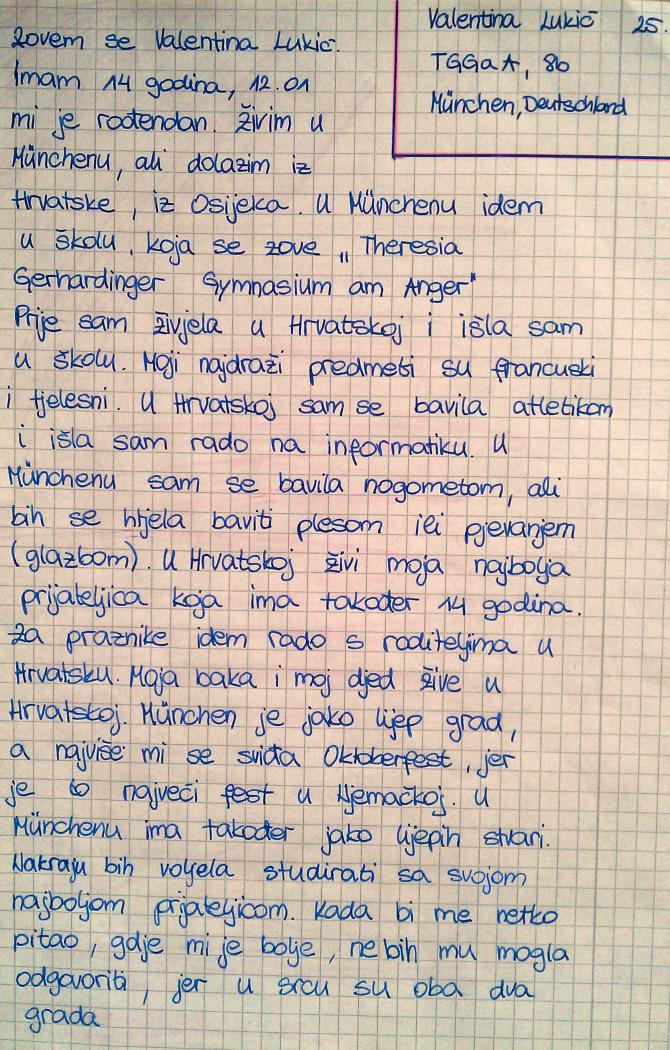 Valentina Lukić 25.
TGGaA, 8b
München, Deutschland
Zovem se Valentina Lukić.
Imam 14 godina, 12.01
mi je rođendan. Živim u
Münchenu, ali dolazim iz
Hrvatske, iz Osijeka. U Münchenu idem
u školu, koja se zove „Theresia
Gerhardinger Gymnasium am Anger"
Prije sam živjela u Hrvatskoj i išla sam
u školu. Moji najdraži predmeti su francuski
i tjelesni. U Hrvatskoj sam se bavila atletikom
i išla sam rado na informatiku. U
Münchenu sam se bavila nogometom, ali
bih se htjela baviti plesom ili pjevanjem
(glazbom). U Hrvatskoj živi moja najbolja
prijateljica koja ima također 14 godina.
Za praznike idem rado s roditeljima u
Hrvatsku. Moja baka i moj djed žive u
Hrvatskoj. München je jako lijep grad,
a najviše mi se sviđa Oktoberfest, jer
je to najveći fest u Njemačkoj. U
Münchenu ima također jako lijepih stvari.
Nakraju bih voljela studirati sa svojom
najboljom prijateljicom. Kada bi me netko
pitao, gdje mi je bolje, ne bih mu mogla
odgovoriti, jer u srcu su oba dva
grada